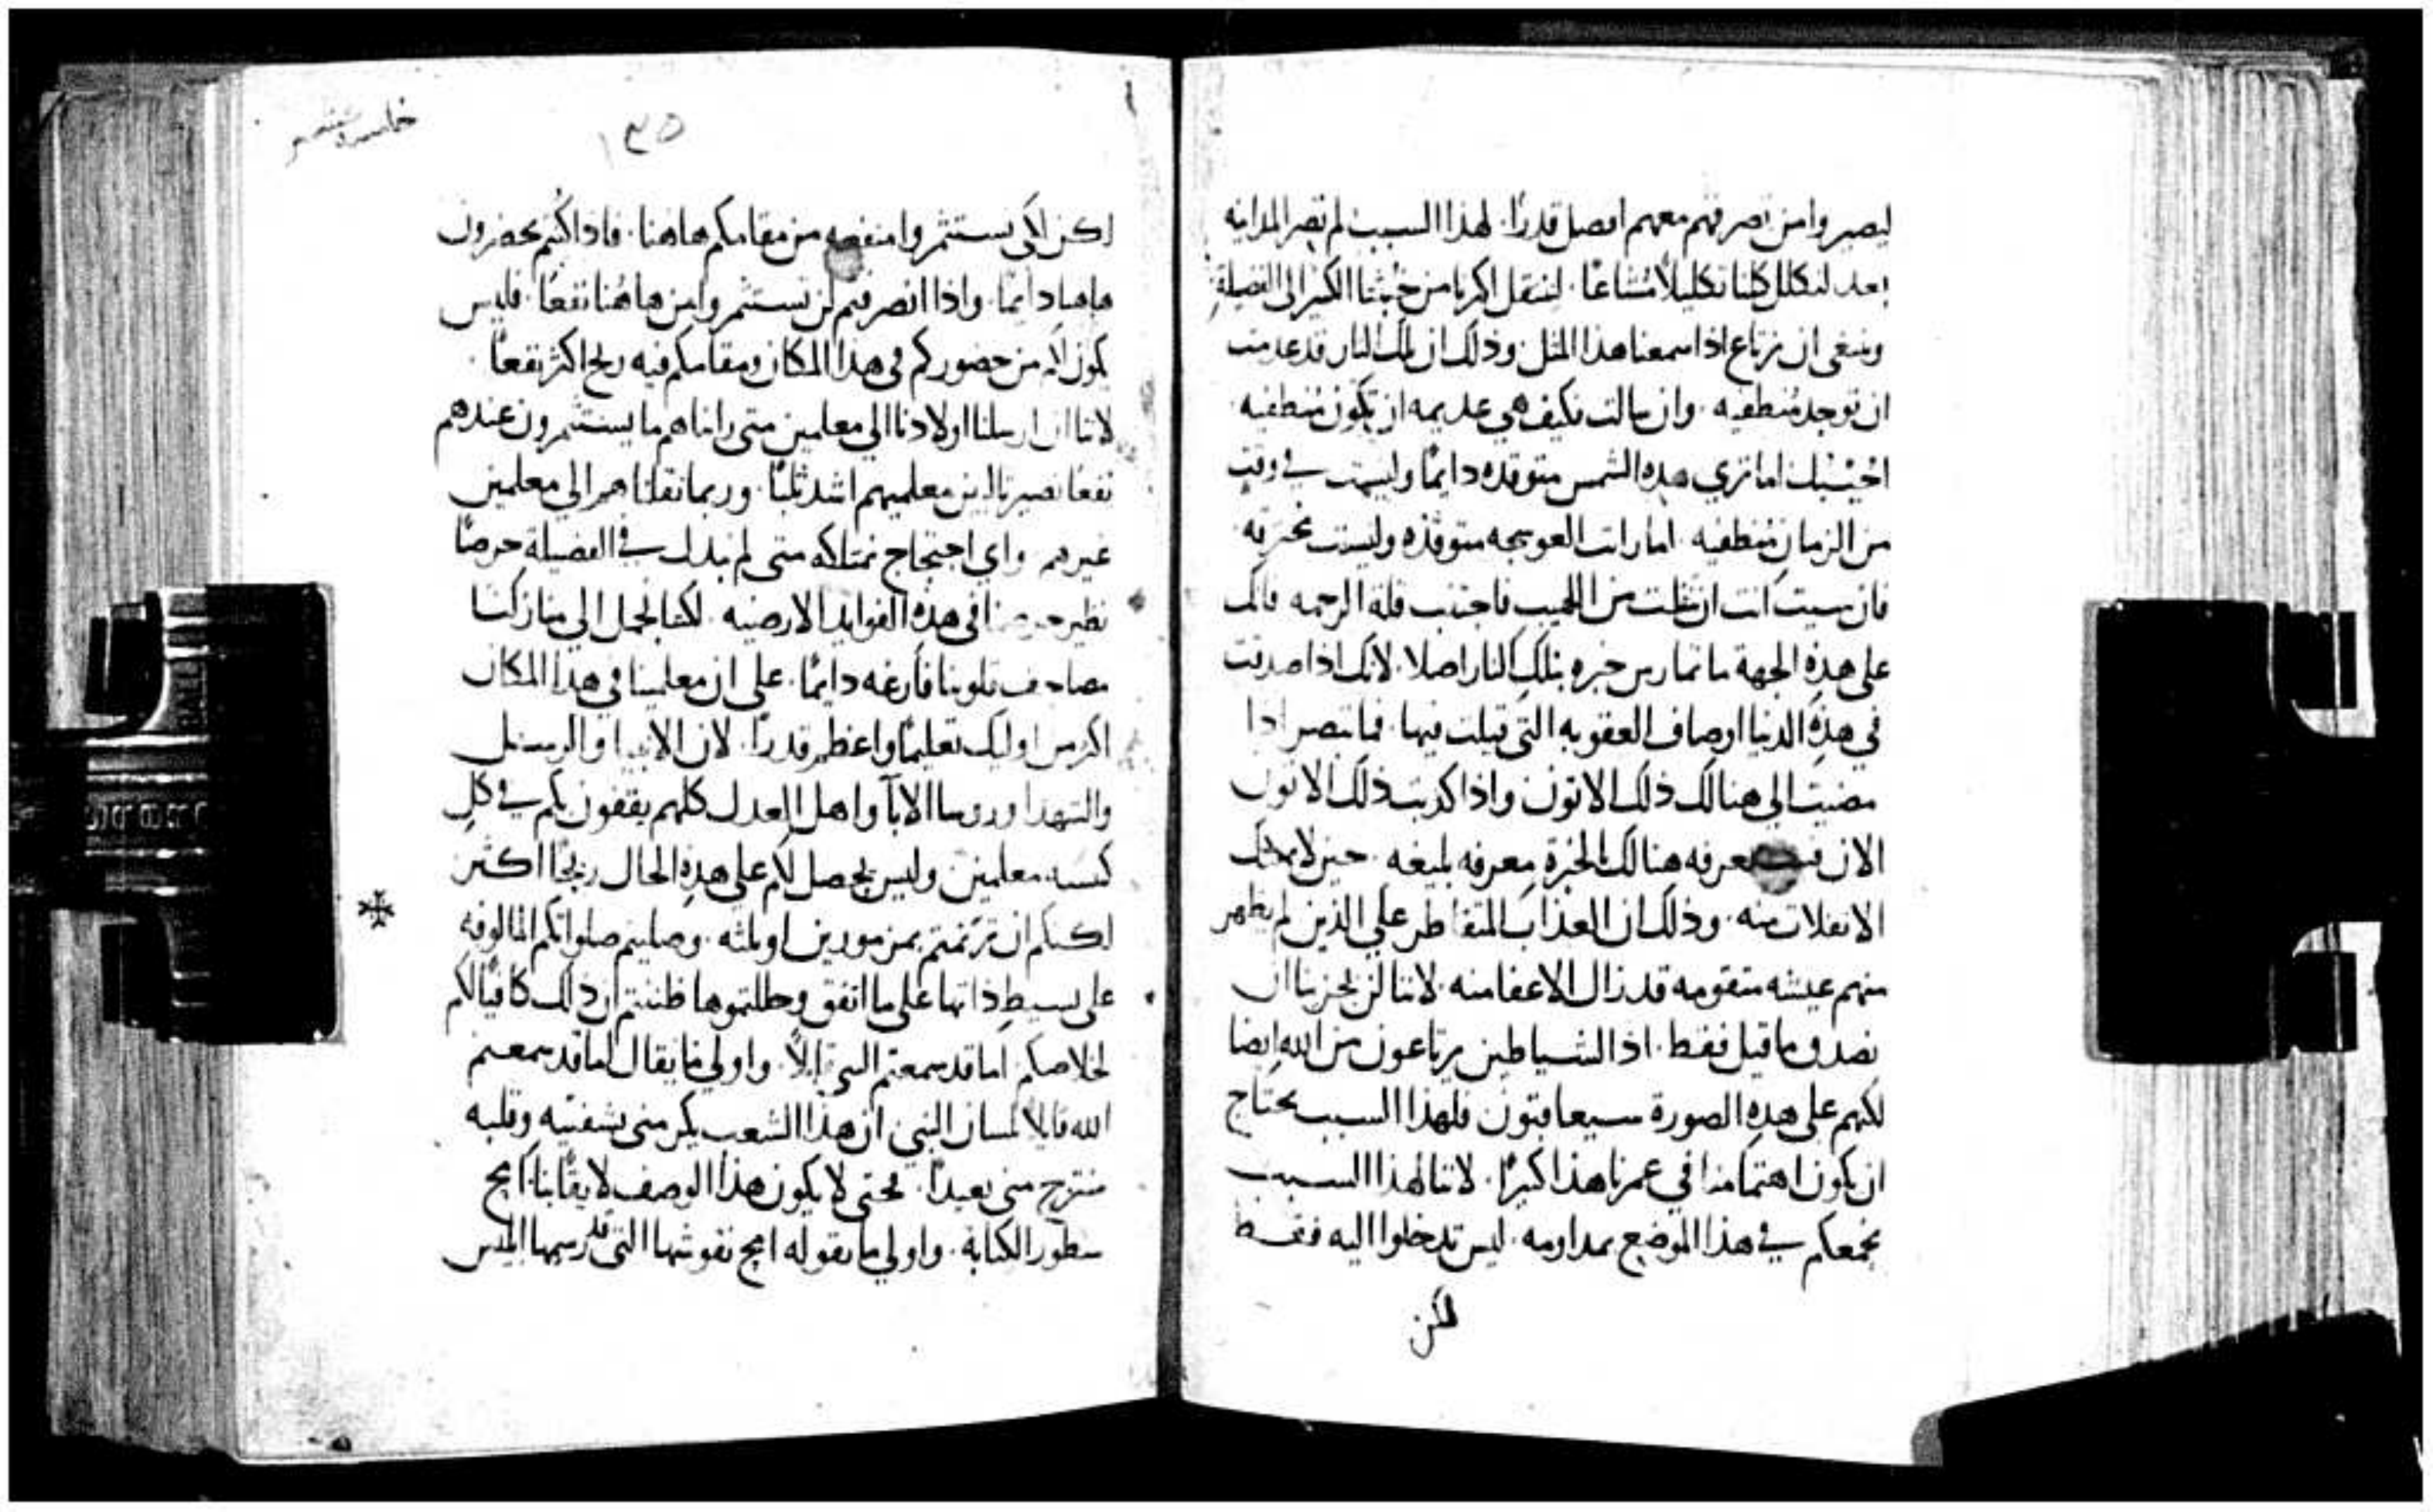 ليصيروا من تصرفهم معهم افضل قدرًا. لهذا السبب لم تصر المداينه
بعد لنكلل كلنا تكليلًا مشاعًا. لننتقل اكثرنا من خبثنا الكثير الى الفضيلة
وينبغي ان نرتاع اذا سمعنا هذا المثل وذلك ان تلك النار قد عدمت
ان توجد منطفيه. وان سالت فكيف هي عديمه ان تكون منطفيه.
اجيبك اما تري هذه الشمس متوقده دايمًا وليست في وقت
من الزمان منطفيه. اما رايت العوسجه متوقده وليست محترقه
فان شيت انت ان تفلت من اللهيب فاجتنب قلة الرحمه فانك
على هذه الجهة ما تمارس خبره بتلك النار اصلا. لانك اذا صدقت
في هذه الدنيا اوصاف العقوبه التي قيلت فيها. فما تبصر اذا
مضيت الى هنالك ذلك الاتون واذا كذبت ذلك الاتون
الان تعرفه هنالك بالخبرة معرفه بليغه. حين لا يمكنك
الانفلات منه. وذلك ان العذاب المتقاطر علي الذين لم يظهر
منهم عيشه متقومه قد زال الاعفا منه. لاننا لن يجزينا ان
نصدق ما قيل فقط. اذ الشياطين يرتاعون من الله ايضا
لكنهم على هذه الصورة سيعاقبون فلهذا السبب يحتاج
ان يكون اهتمامنا في عمرنا هذا كبيرًا. لاننا لهذا السبب
نجمعكم في هذا الموضع بمداومه. ليس تدخلوا اليه فقط
لكن
خامسة عشر
١٣٥
لكن لكي تستثمروا منفعه من مقامكم هاهنا. فاذا كنتم تحضرون
هاهنا دايمًا. واذا انصرفتم لن تستثمروا من هاهنا نفعًا. فليس
يكون لكم من حضوركم في هذا المكان ومقامكم فيه ربح اكثر نفعًا.
لاننا ان ارسلنا اولادنا الي معلمين متى رايناهم ما يستثمرون عندهم
نفعًا نصير ثالبين معلميهم اشد ثلبًا. وربما نقلناهم الي معلمين
غيرهم واي احتجاج نمتلكه متى لم نبذل في الفضيلة حرصًا
نظير حرصنا في هذه الفوايد الارضيه. لكننا نحمل الى منازلنا
مصاحف قلوبنا فارغه دايمًا. على ان معلمينا في هذا المكان
اكثر من اوليك تعليمًا واعظم قدرًا. لان الانبيا والرسل
والشهدا وروسا الابآ واهل العدل كلهم يقفون بكم في كل
كنيسه معلمين وليس يحصل لكم على هذه الحال ربحًا اكثر
لكنكم ان ترنمتم بمزمورين او ثلثه. وصليتم صلواتكم المالوفه
على بسيط ذاتها على ما اتفق وحللتموها ظننتم ان ذلك كافيًا لكم
لخلاصكم اما قد سمعتم النبي قايلًا. واولي ما يقال اما قد سمعتم
الله قايلا بلسان النبي ان هذا الشعب يكرمني بشفتيه وقلبه
منتزح مني بعيدًا. فحتى لا يكون هذا الوصف لايقًا بنا. امح
سطور الكتابة. واولي ما نقوله امح نقوشها التي قد رسمها ابليس